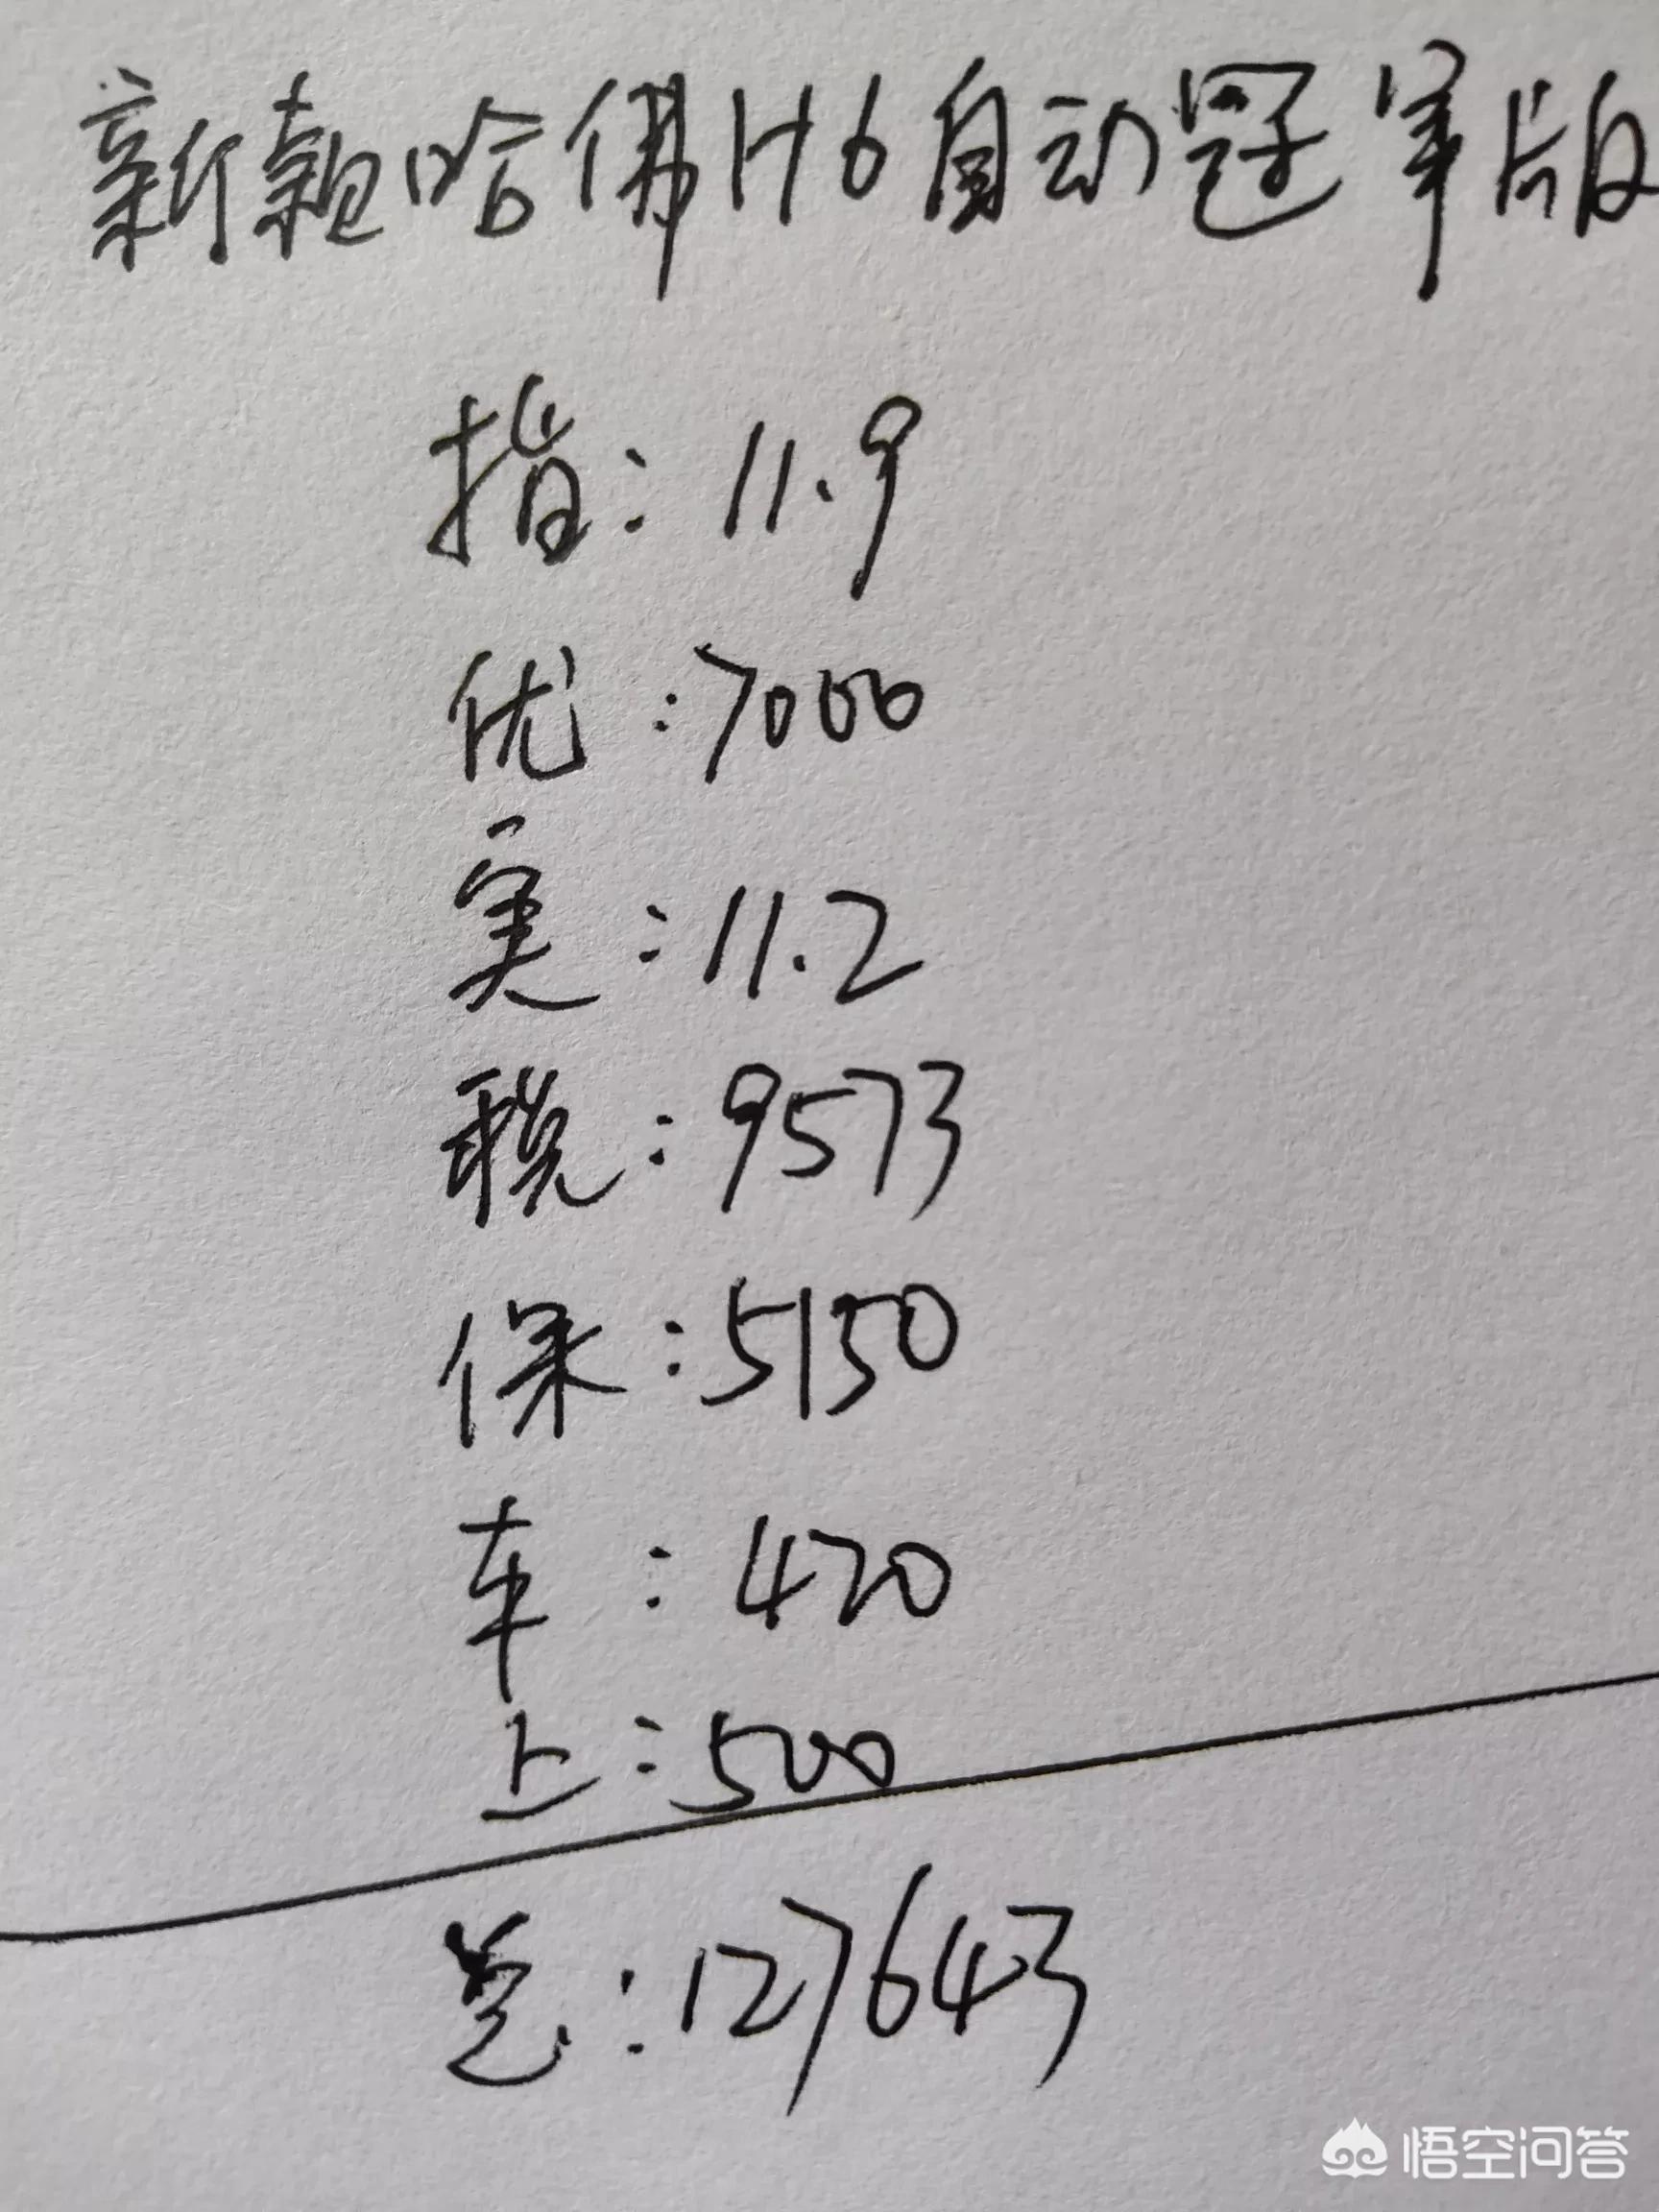 新款哈佛H6自动冠军版
指：11.9
优：7000
实：11.2
税：9573
保：5150
车：420
上：500
总：127643
悟空问答